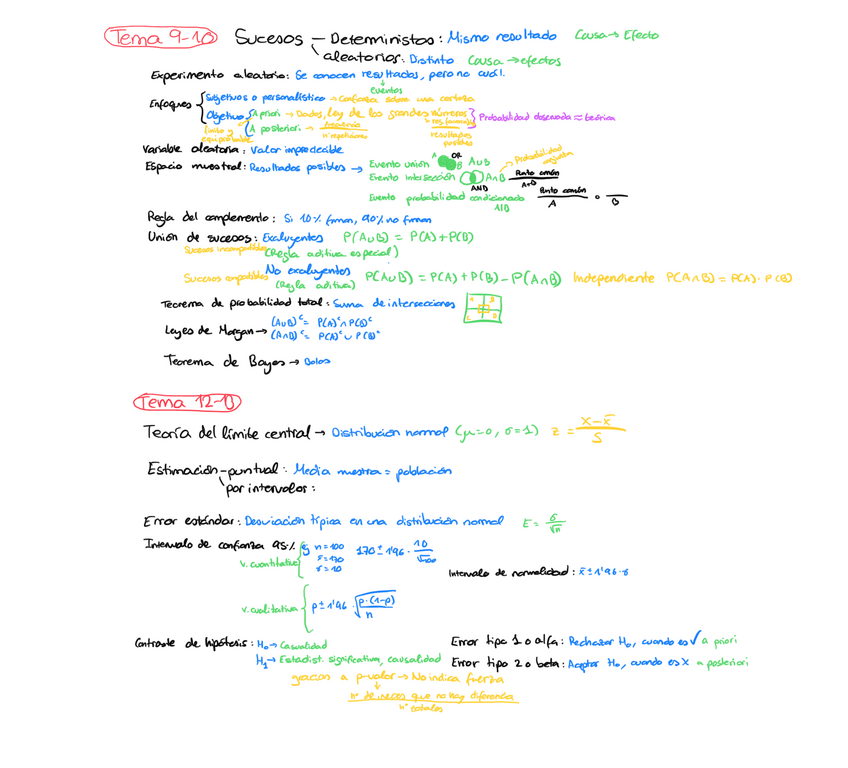 Tema 9-10 Sucesos — Deterministas: Mismo resultado Causa → Efecto
aleatorios: Distinto Causa → efectos
Experimento aleatorio: Se conocen resultados, pero no cuál.
Eventos
Enfoques
Subjetivos o personalístico → Confianza sobre una certeza
Objetivo A priori → Dados, Ley de los grandes números Probabilidad observada ≈ teórica
A posteriori → / nº repeticiones
resultados posibles
Variable aleatoria: Valor impredecible
Espacio muestral: Resultados posibles → Evento unión A OR B A∪B
Probabilidad conjunta
Evento intersección A∩B Punto común / A+B
AND
Evento probabilidad condicionada Punto común / A o / B
A|B
Regla del complemento: Si 10% fuman, 90% no fuman
Unión de sucesos: Excluyentes P(A∪B) = P(A)+P(B)
Sucesos incompatibles (Regla aditiva especial)
Sucesos compatibles No excluyentes P(A∪B) = P(A)+P(B) - P(A∩B) Independiente P(A∩B) = P(A) · P(B)
(Regla aditiva)
Teorema de probabilidad total: Suma de intersecciones
Leyes de Morgan → (A∪B)ᶜ = P(A)ᶜ ∩ P(B)ᶜ
(A∩B)ᶜ = P(A)ᶜ ∪ P(B)ᶜ
Teorema de Bayes → Bolas
Tema 12-13
Teoría del límite central → Distribución normal (μ=0, σ=1) z = x-x̄ / S
Estimación — puntual: Media muestra = población
por intervalos:
Error estándar: Desviación típica en una distribución normal E = σ / √n
Intervalo de confianza 95%
v. cuantitativa
n=100
x̄=170
σ=10
170 ± 1'96 · 10 / √100
Intervalo de normalidad: x̄ ± 1'96 · σ
v. cualitativa p ± 1'96 · √ p·(1-p) / n
Contraste de hipótesis: H₀ → Casualidad
H₁ → Estadíst. significativa, causalidad
Error tipo 1 o alfa: Rechazar H₀, cuando es ✓ a priori
Error tipo 2 o beta: Aceptar H₀, cuando es X a posteriori
gracias a p-valor → No indica fuerza
nº de veces que no hay diferencia
nº totales